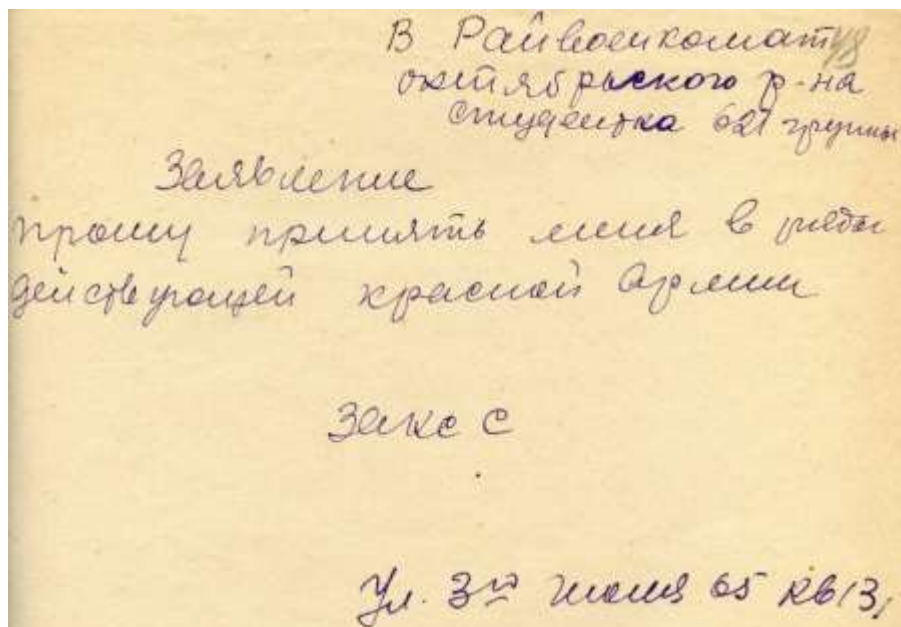 В Райвоенкомат 48
октябрьского р-на
студентка 621 группы
Заявление
прошу принять меня в ряды
действующей красной Армии
Закс С
Ул. 3го июля 65 кв 13,